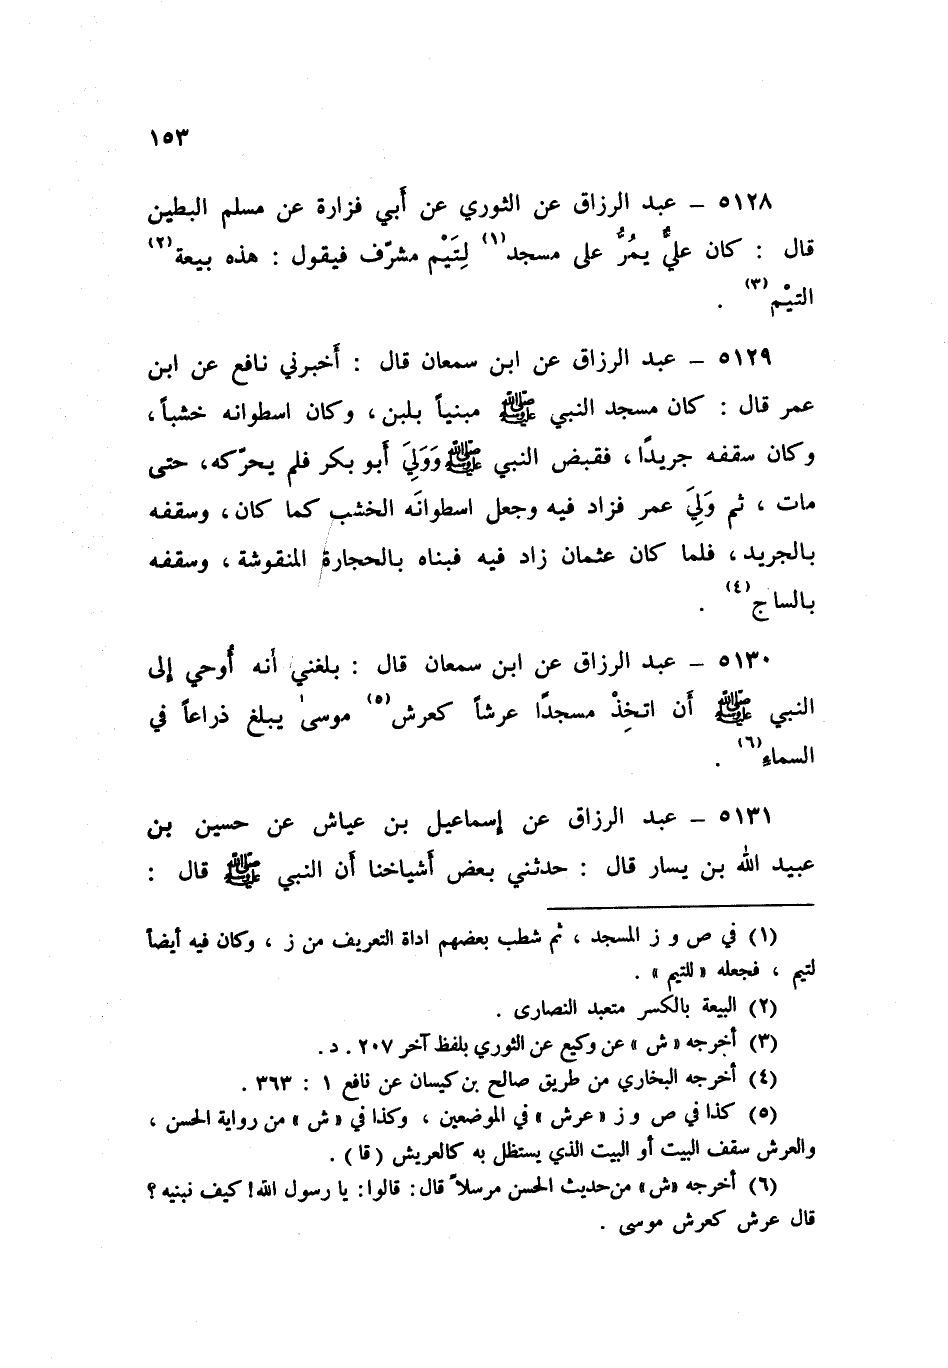 ١٥٣
٥١٢٨ ـ عبد الرزاق عن الثوري عن أَبي فزارة عن مسلم البطين
قال : كان عليٌّ يمُرُّ على مسجد(١) لِتَيْم مشرّف فيقول : هذه بيعة(٢)
التيْم(٣) .
٥١٢٩ ـ عبد الرزاق عن ابن سمعان قال : أَخبرني نافع عن ابن
عمر قال : كان مسجد النبي ﷺ مبنياً بلبن ، وكان اسطوانه خشباً ،
وكان سقفه جريدًا ، فقبض النبي ﷺ وَوَلِيَ أَبو بكر فلم يحرّكه ، حتى
مات ، ثم وَلِيَ عمر فزاد فيه وجعل اسطوانَه الخشب كما كان ، وسقفه
بالجريد ، فلما كان عثمان زاد فيه فبناه بالحجارة المنقوشة ، وسقفه
بالساج(٤) .
٥١٣٠ ـ عبد الرزاق عن ابن سمعان قال : بلغني أَنه أُوحي إلى
النبي ﷺ أَن اتخِذْ مسجدًا عرشاً كعرش(٥) موسىٰ يبلغ ذراعاً في
السماءِ(٦) .
٥١٣١ ـ عبد الرزاق عن إسماعيل بن عياش عن حسين بن
عبيد الله بن يسار قال : حدثني بعض أَشياخنا أَن النبي ﷺ قال :
(١) في ص و ز المسجد ، ثم شطب بعضهم اداة التعريف من ز ، وكان فيه أيضاً
لتيم ، فجعله «للتيم» .
(٢) البيعة بالكسر متعبد النصارى .
(٣) أخرجه «ش» عن وكيع عن الثوري بلفظ آخر ٢٠٧ . د .
(٤) أخرجه البخاري من طريق صالح بن كيسان عن نافع ١ : ٣٦٣ .
(٥) كذا في ص و ز «عرش» في الموضعين ، وكذا في «ش» من رواية الحسن ،
والعرش سقف البيت أو البيت الذي يستظل به كالعريش (قا) .
(٦) أخرجه «ش» من حديث الحسن مرسلاً قال : قالوا : يا رسول الله! كيف نبنيه ؟
قال عرش كعرش موسى .